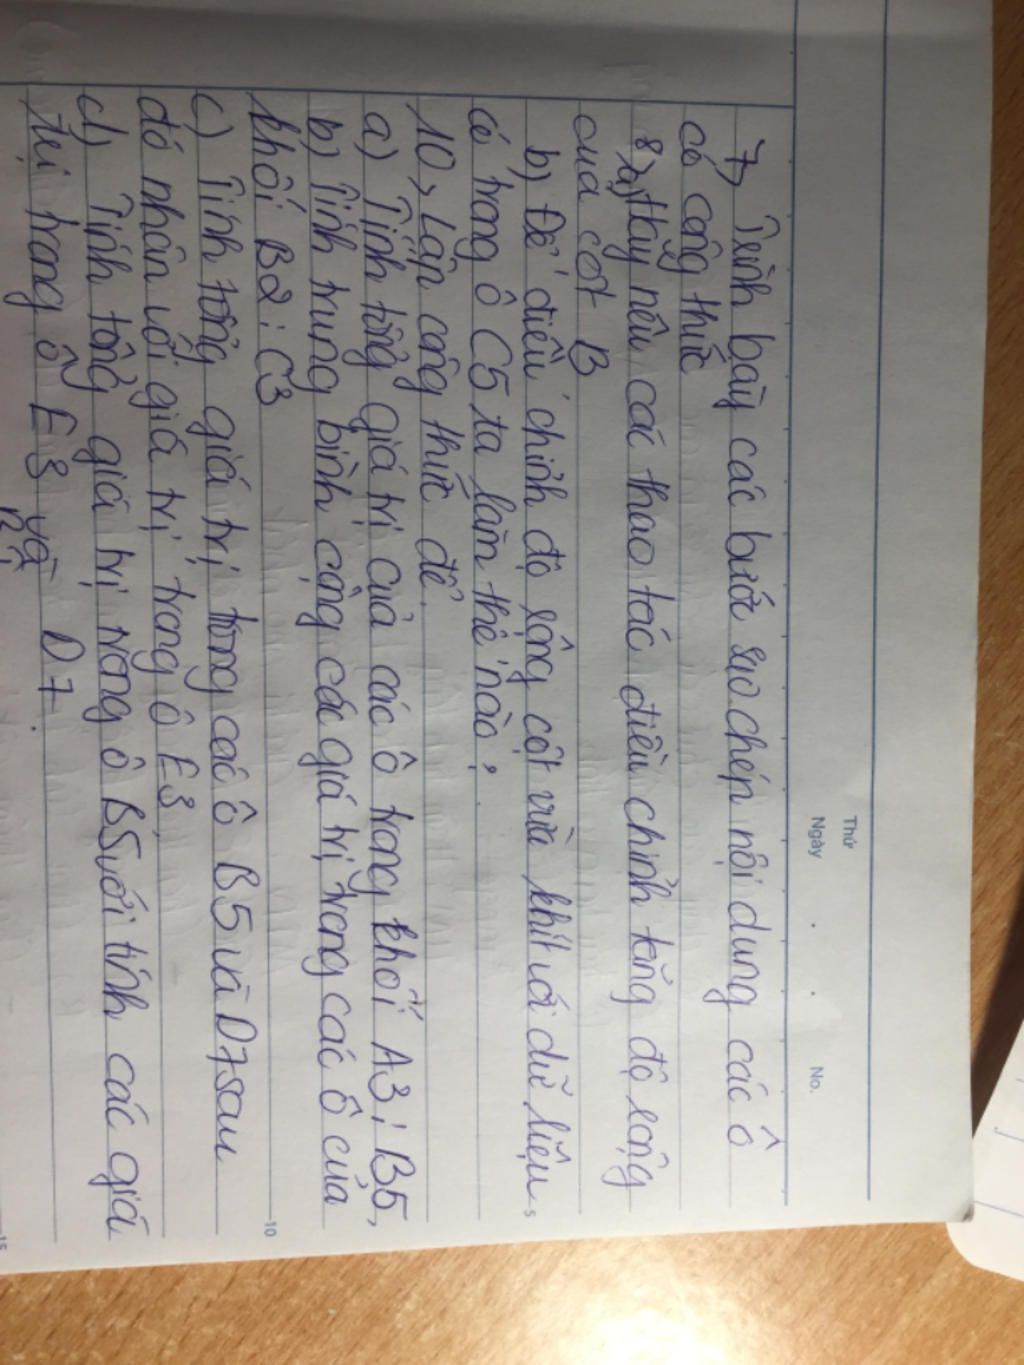 Thứ
Ngày . . No.
7, Trình bày các bước sao chép nội dung các ô
có công thức
8, a, Hãy nêu các thao tác điều chỉnh tăng độ rộng
của cột B
b) Để điều chỉnh độ rộng cột vừa khít với dữ liệu
có trong ô C5 ta làm thế nào?
10, Lập công thức để.
a) Tính tổng giá trị của các ô trong khối A3: B5,
b) Tính trung bình cộng các giá trị trong các ô của
khối B2: C3
c) Tính tổng giá trị trong các ô B5 và D7 sau
đó nhân với giá trị trong ô E3
d) Tính tổng giá trị trong ô B5 với tính các giá
trị trong ô E3 và D7.
5
10
15